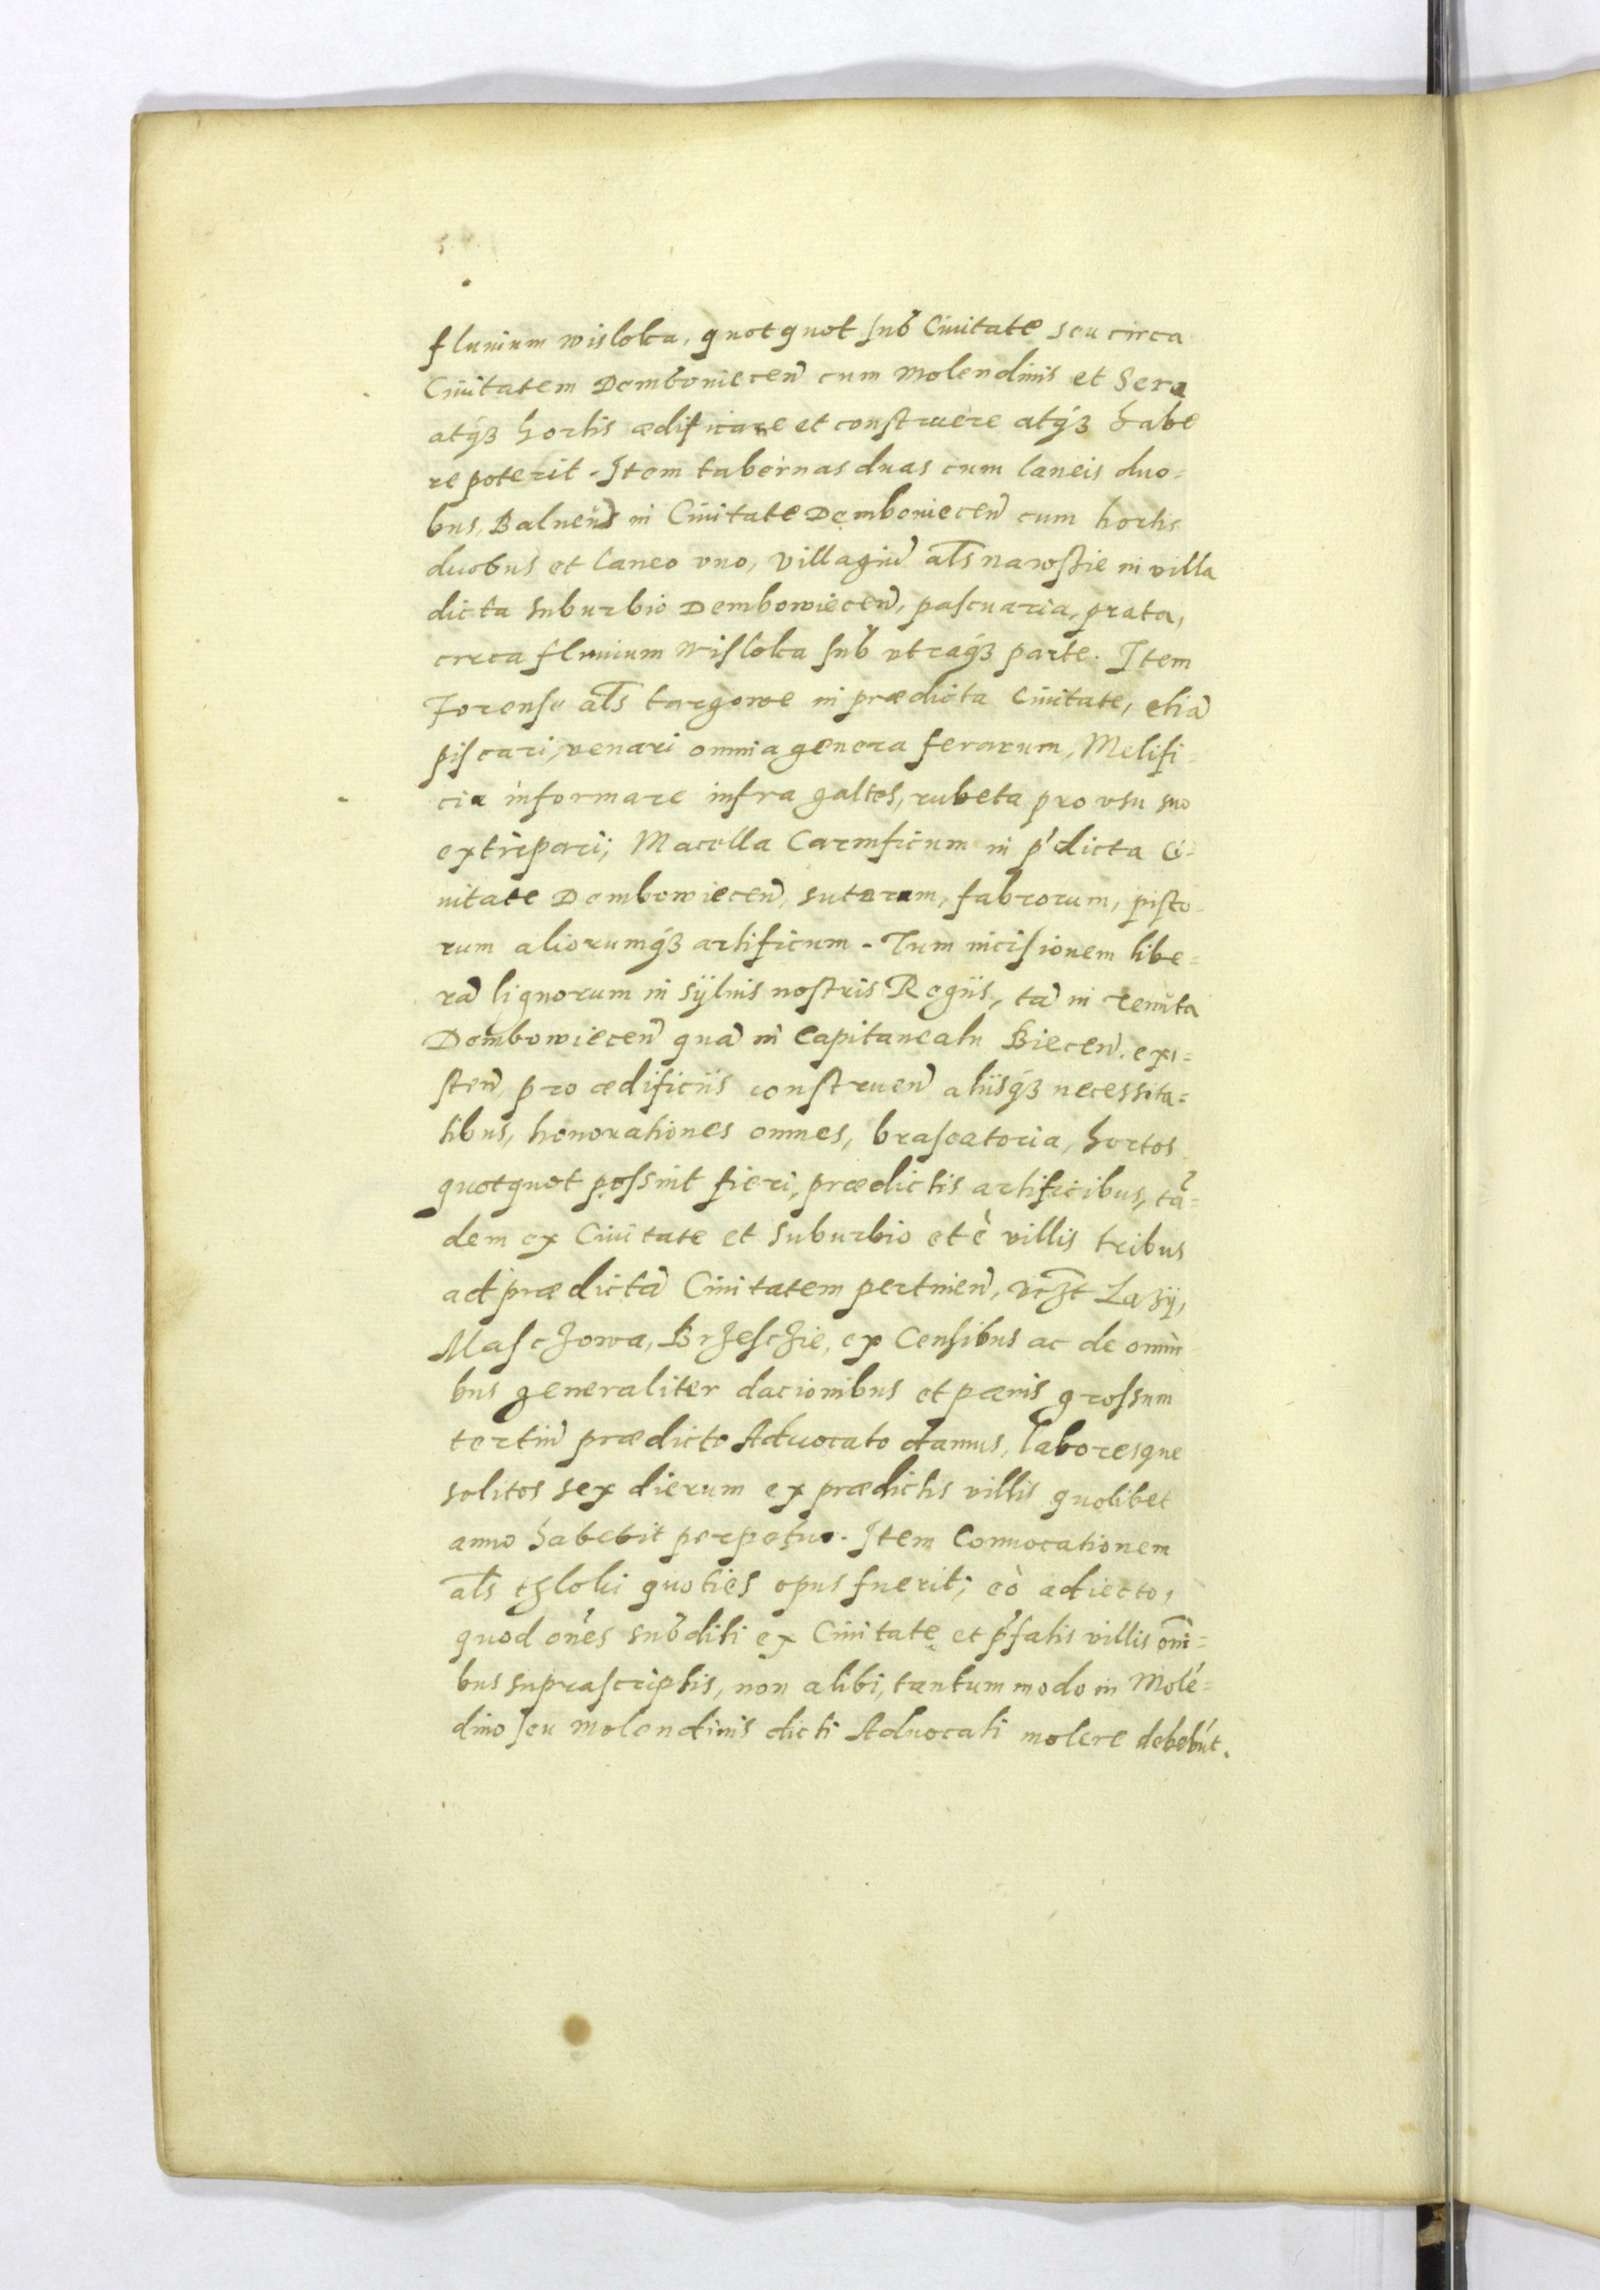 fluuium wisloka, quotquot sub Ciuitate seu circa
Ciuitatem Dembouiecen̄ cum Molendinis et Sera
atq́ꝫ hortis ædificare et construere atq́ꝫ habe
re poterit. Item tabernas duas cum laneis duo=
bus, Balneū in Ciuitate Dembouiecen̄ cum hortis
duobus et laneo vno, villagiū al̄s nawsie in villa
dicta suburbio Dembowiecen̄, pascuaria, prata,
circa fluuium Wisloka sub vtraq́ꝫ parte. Item
Forense al̄s targowe in prædicta Ciuitate, etiā
piscari, venari omnia genera ferarum, Melifi=
cia informare infra galtes, rubeta pro vsu suo
extirpari; Macella Carnificum in ṕdicta Ci=
uitate Dembowiecen̄, sutorum, fabrorum, pisto=
rum aliorumq́ꝫ artificum. Tum incisionem libe=
rā lignorum in syluis nostris Regiis, tā in tenuta
Dembowiecen̄ quā in Capitaneatu Biecen̄. exi=
sten̄ pro ædificiis construen̄ aliisq́ꝫ necessita=
tibus, honorationes omnes, braseatoria, hortos
quotquot possint fieri, prædictis artificibus, tā=
dem ex Ciuitate et suburbio et è villis tribus
ad prædictā Ciuitatem pertinen̄, vcꝫt Lazÿ,
Maschowa, Brzeschie, ex Censibus ac de omni=
bus generaliter dacionibus et pœnis grossum
tertiū prædicto Aduocato damus, laboresque
solitos sex dierum ex prædictis villis quolibet
anno habebit perpetuo. Item Conuocationem
al̄s thloki quoties opus fuerit; eò adiecto,
quod oēs subditi ex Ciuitate et ṕfatis villis om̄i=
bus suprascriptis, non alibi, tantummodo in Molé=
dino seu molendinis dicti Aduocati molere debebūt.